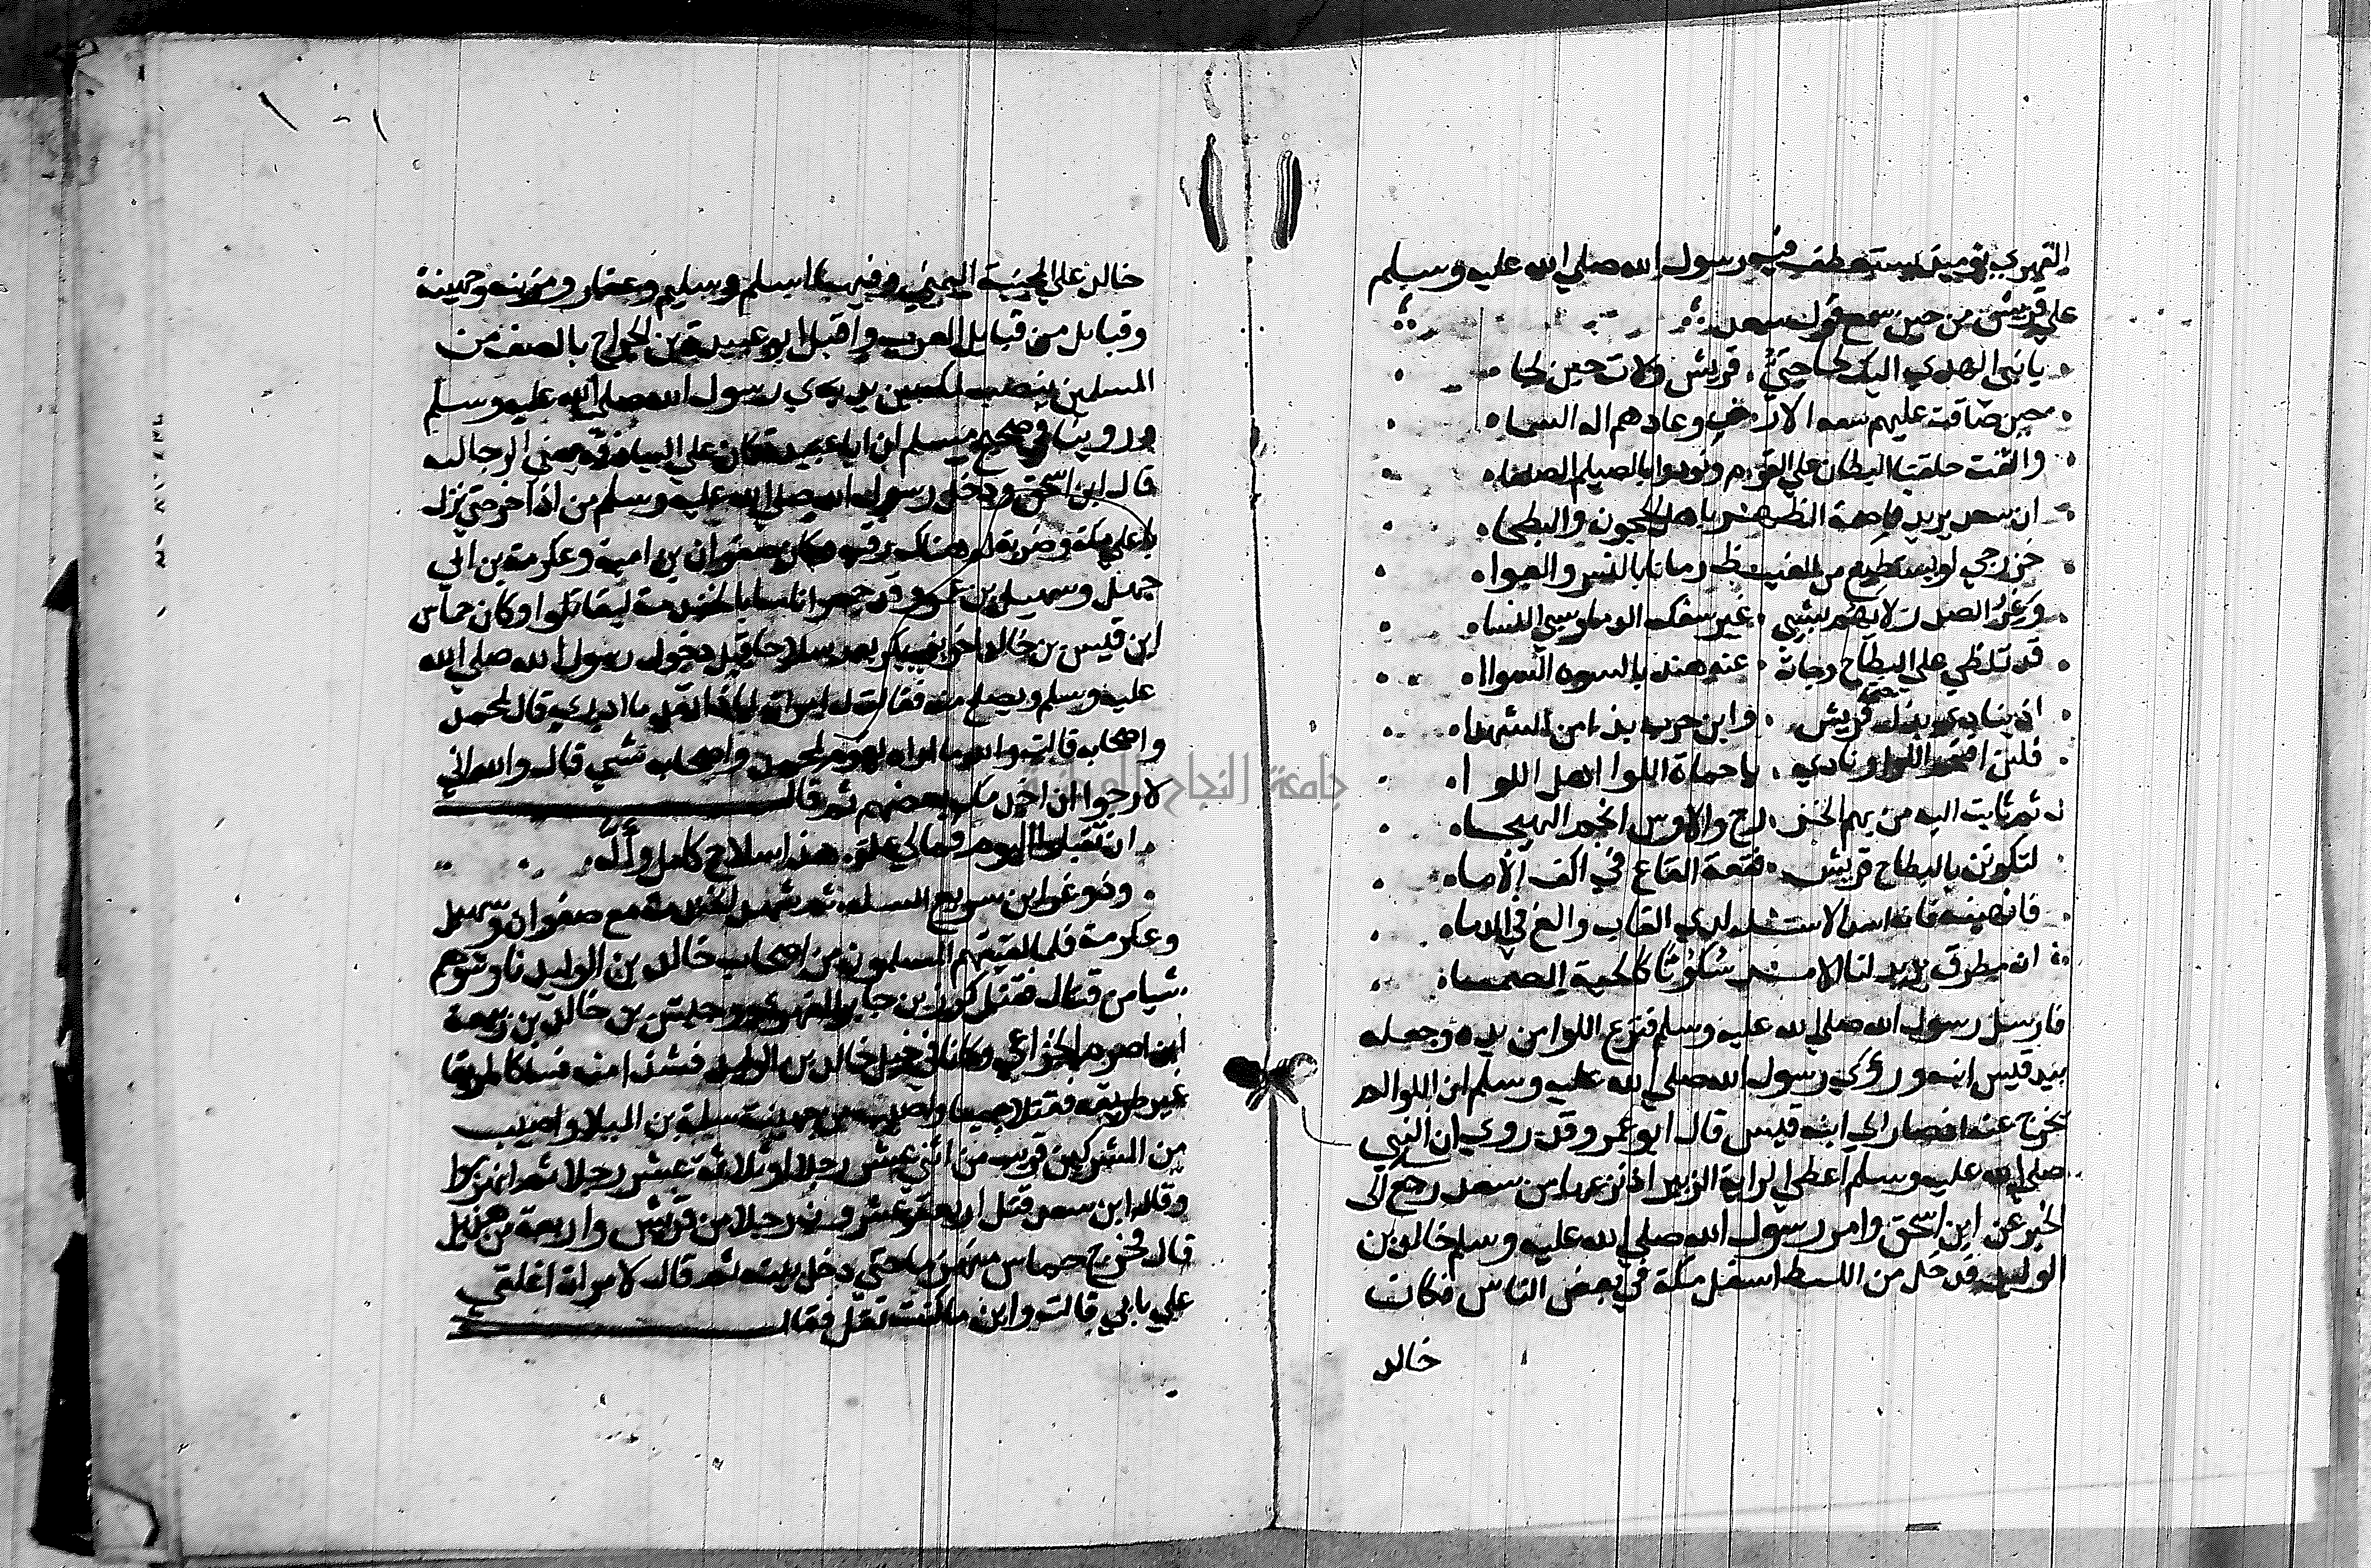 الفهري يوميذ يستعطف رسول الله صلي الله عليه وسلم
علي قريش من حين سمع قول سعد
يا نبي الهدي اليك لجا حيّ قريش ولات حين لجاء
حين ضاقت عليهم سعة الارض وعاداهم اله السماء
والتقت حلقتا البطان علي القوم ونودوا بالصيلم الصلعاء
ان سعدا يريد قاصمة الظهر باهل الحجون والبطحاء
خزرجي لو يستطيع من الغيظ رمانا بالنسر والعواء
وغر الصدر لا يهم بشي غير سفك الدما وسبي النساء
قد تلظي علي البطاح وجات عنه هند بالسوة السواء
اذ ينادي بذل حي قريش وابن حرب بذا من الشهداء
فلين اقحم اللوا ونادي يا حماة اللوا اهل اللواء
ثم ثابت اليه من بهم الخزرج والاوس انجم الهيجاء
لتكونن بالبطاح قريش فقعة القاع في اكف الاماء
فانهينه فانه اسد الاسد لدي الغاب والغ في الدماء
انه مطرق يريد لنا الامر سكوتا كالحية الصماء
فارسل رسول الله صلي الله عليه وسلم فنزع اللوا من يده وجعله
بيد قيس ابنه وروي رسول الله صلي الله عليه وسلم ان اللوا لم
يخرج عنه اذ صار الي ابنه قيس قال ابو عمر وقد روي ان النبي
صلي الله عليه وسلم اعطي الراية الزبير اذ نزعها من سعد رجع الي
الخبر عن ابن اسحق وامر رسول الله صلي الله عليه وسلم خالد بن
الوليد فدخل من الليط اسفل مكة في بعض الناس فكان
خالد
١٠١
خالد علي المجنبة اليمني وفيها اسلم وسليم وغفار ومزينه وجهينة
وقبائل من قبايل العرب واقبل ابو عبيدة بن الجراح بالصف من
المسلمين ينصب لمكة بين يدي رسول الله صلي الله عليه وسلم
وروينا في صحيح مسلم ان ابا عبيدة كان علي البياذقة يعني الرجالة
قال ابن اسحق ودخل رسول الله صلي الله عليه وسلم من اذاخر حتي نزل
باعلي مكة وضربت له هنالك قبته وكان صفوان بن امية وعكرمة بن ابي
جهل وسهيل بن عمرو قد جمعوا ناسا بالخندمة ليقاتلوا وكان حماس
ابن قيس بن خالد اخو بني بكر يعد سلاحا قبل دخول رسول الله صلي الله
عليه وسلم ويصلح منه فقالت له امراته لماذا تعد ما اري قال لمحمد
واصحابه قالت والله ما اراه يقوم لمحمد واصحابه شي قال والله اني
لارجوا ان اخدمك بعضهم ثم قال
ان تقبلوا اليوم فمالي علة هذا سلاح كامل وألّه
وذو غرارين سريع السله ثم شهد الخندمة مع صفوان وسهيل
وعكرمة فلما لقيهم المسلمون من اصحاب خالد بن الوليد ناوشوهم
شيا من قتال فقتل كرز بن جابر الفهري وحبيش بن خالد بن ربيعة
ابن اصرم الخزاعي وكانا في خيل خالد بن الوليد فشذا منه فسلكا طريقا
غير طريقه فقتلا جميعا واصيب من جهينة سلمة بن الميلا واصيب
من المشركين قريب من اثني عشر رجلا او ثلاثة عشر رجلا ثم انهزموا
وقال ابن سعد قتل اربعة وعشرون رجلا من قريش واربعة من هذيل
قال فخرج حماس منهزما حتي دخل بيته ثم قال لامراته اغلقي
علي بابي قالت واين ما كنت تقول فقال
جامعة النجاح الوطنية